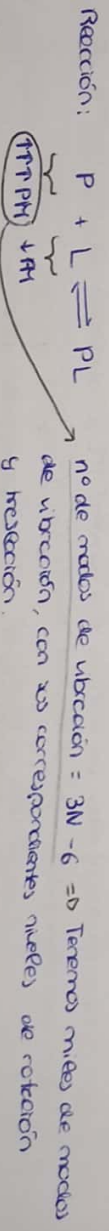 Reacción: P + L ⇌ PL
↑↑↑PM ↓PM
nº de modos de vibración = 3N - 6 => Tenemos miles de modos
de vibración, con sus correspondientes niveles de rotación
y traslación.